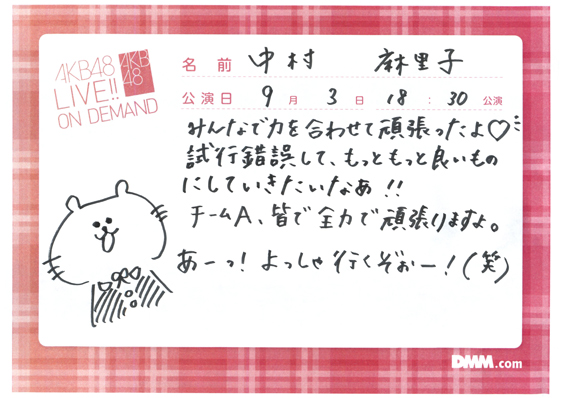 AKB48
LIVE!!
ON DEMAND
AKB
48
名前 中村 麻里子
公演日 9月3日 18:30公演
みんなで力を合わせて頑張ったよ♡
試行錯誤して、もっともっと良いもの
にしていきたいなあ!!
チームA、皆で全力で頑張りますよ。
あーっ!よっしゃ行くぞぉー!(笑)
DMM.com